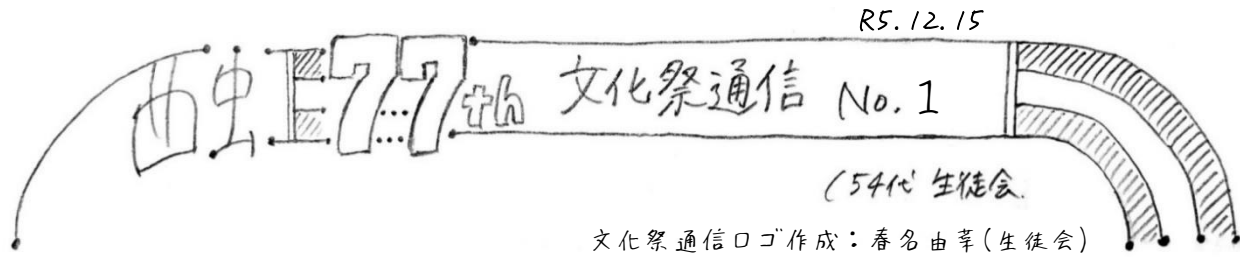 R5.12.15
77th 文化祭通信 No.1
(54代 生徒会
文化祭通信ロゴ作成：春名由莘(生徒会)